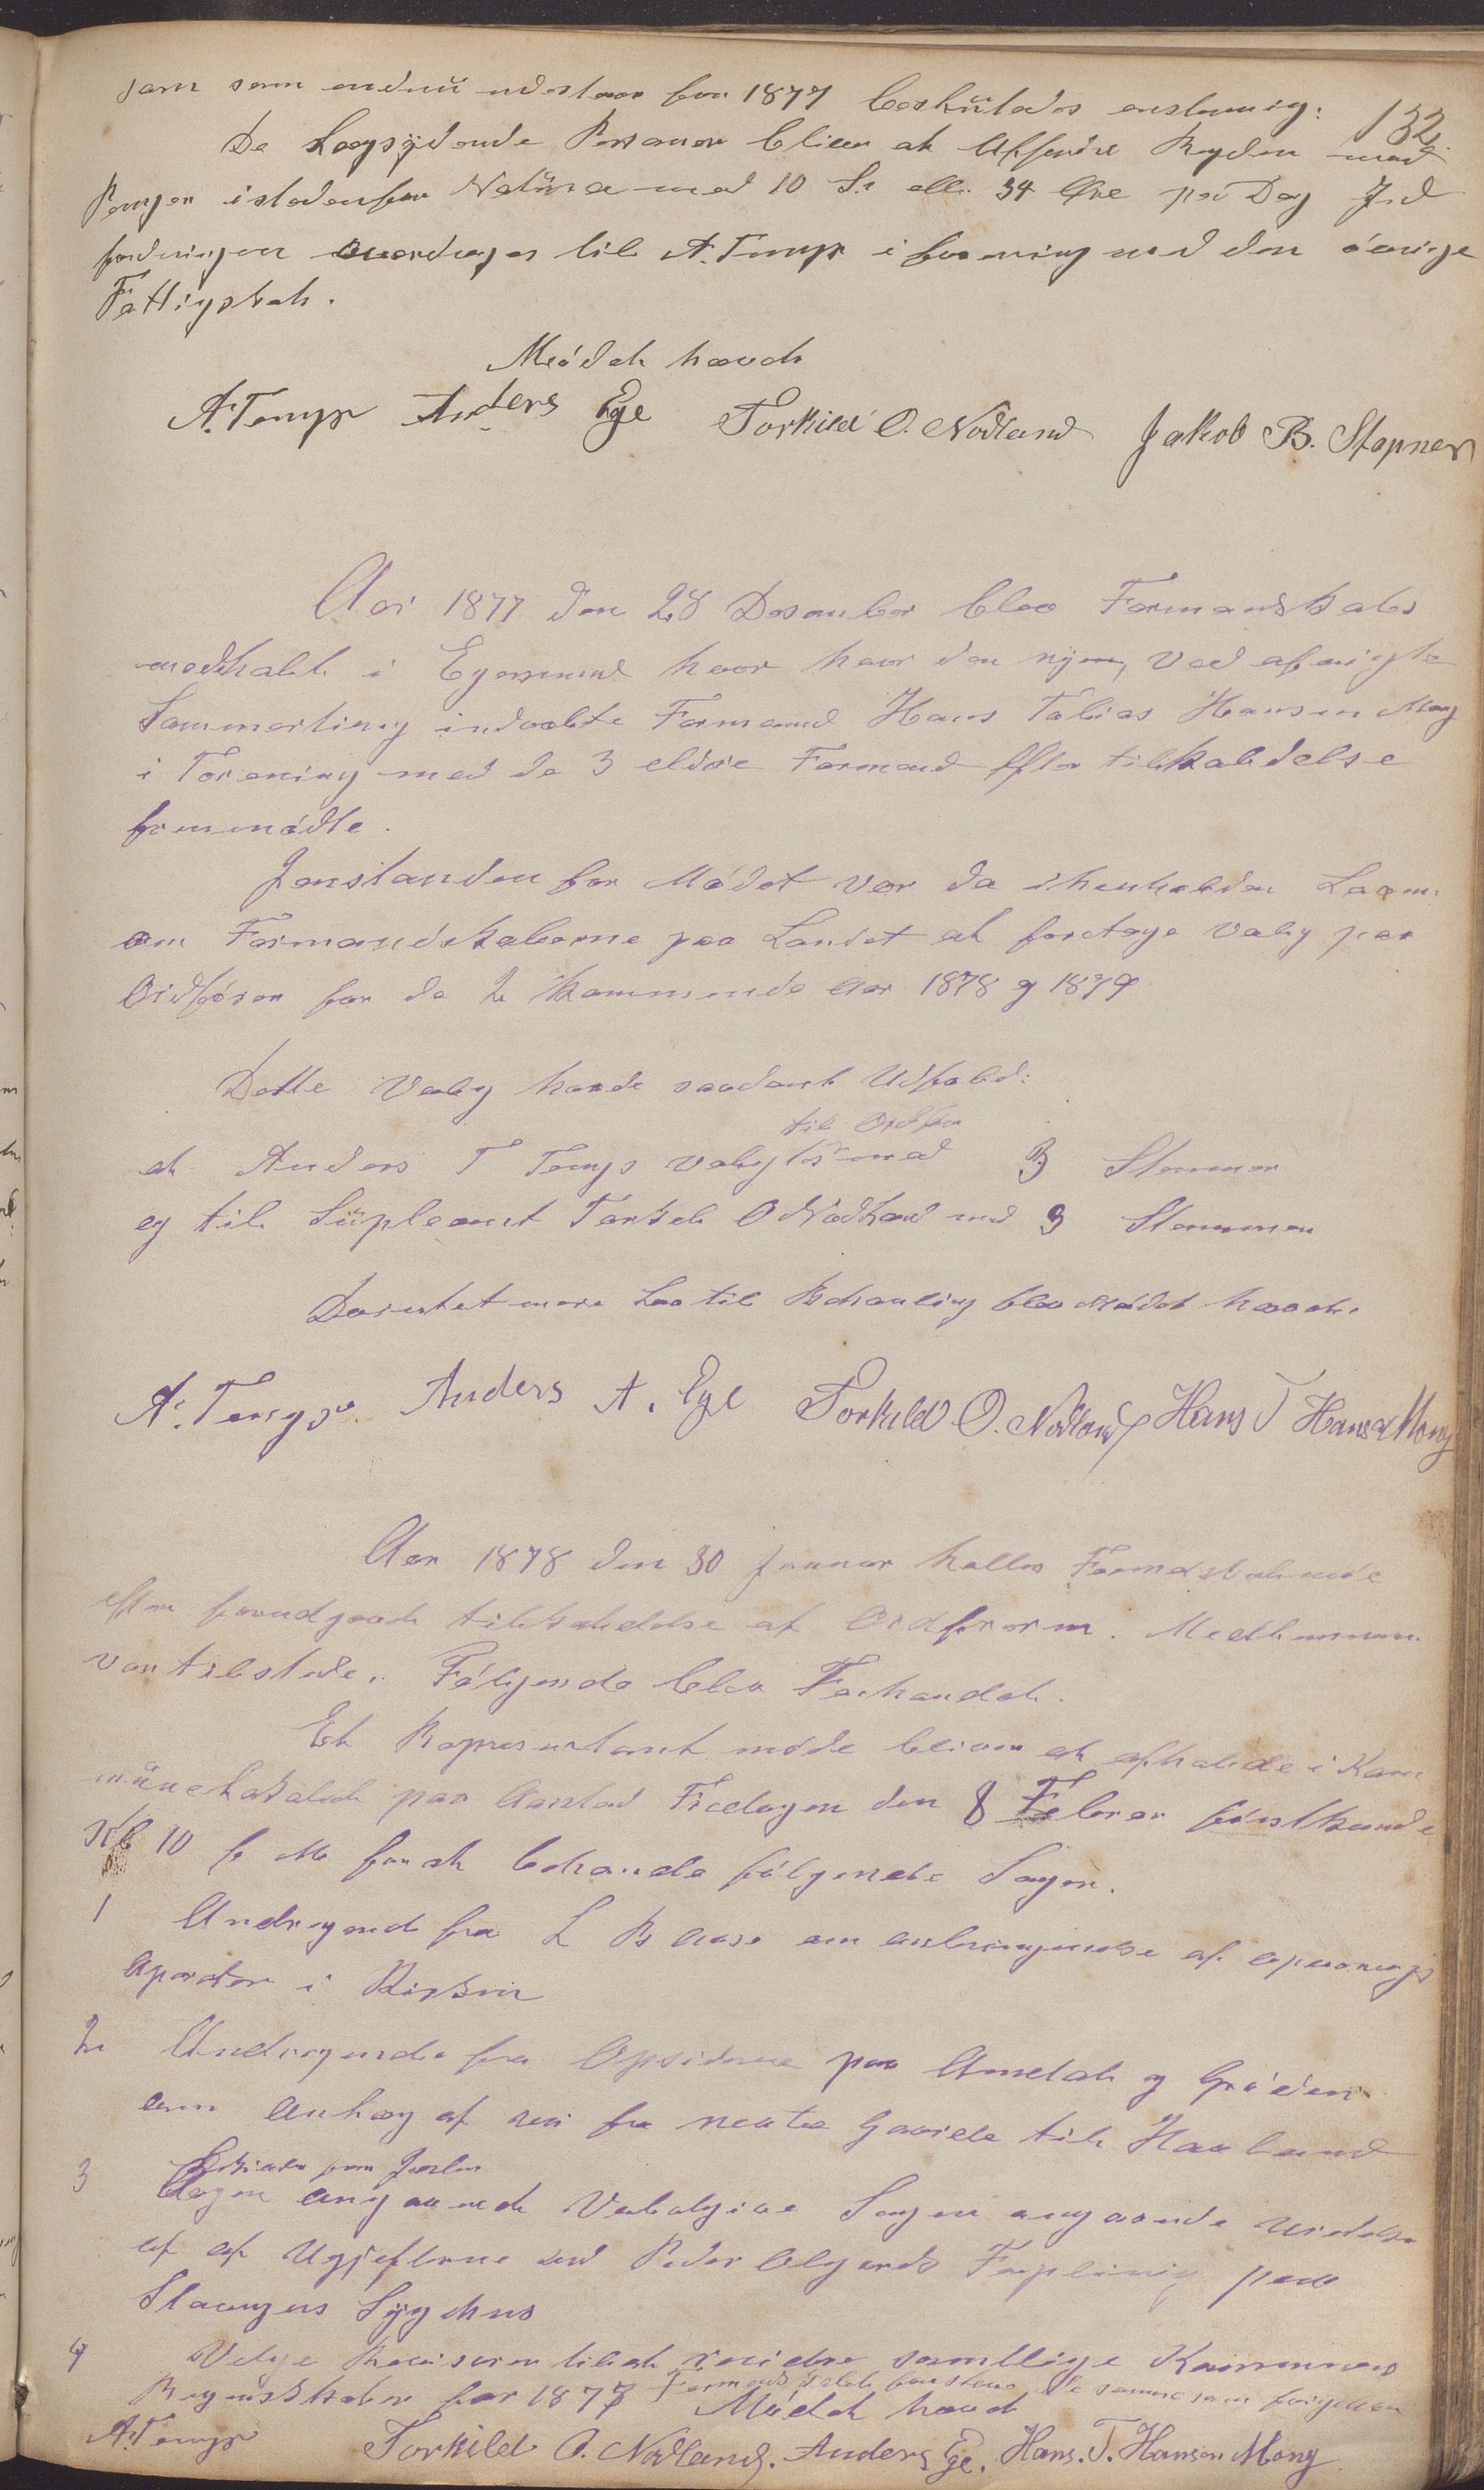 som som endnu udestaar for 1877 besluttedes enstemmig: 132
De Laegsydende Personer bliver at Afsende Ryden med
Penger istedenfor Natura med 10 S. ell. 34 Øre per Dag Ind
fordringen overdrages til A. Tengs i forening med den øvrige
Fattigskat.
Mødet hævet
A. Tengs Anders Ege Torkild O. Nodland Jakob B. Stapnes
Aar 1877 den 28 Desember blev Formandskabs
mødhalt i Egersund hvor den nyen, Ved afvigte
Sommerting indvalte Formand Hans Tobias Hansen Mong
i Forening med de 3 eldre Formend Efter tilkaldelse
fremmødte.
Jenstanden for Mødet var da ihenholden Loven
om Formandskaberne paa Landet at foretage valg paa
Ordfører for de 2 kommende Aar 1878 g 1879
Dette Valg havde saadant Udfald:
til Ordfør
at Anders T Tengs valgtes med 3 Stemmer
og til Supleant Torkel O Nodland med 3 Stemmer
Da intet mere Laa til Behanling blev Mødet hævet.
A. Tengs. Anders A. Ege Torkild O. Nodland Hans T Hansen Mong
Aar 1878 den 30 Januar holtes Formdskabmøde
efter forudgaaet tilkaldelse af Ordføreren. Medlemmene
var tilstede. Følgende blev Forhandlet.
Et Represantant møde bliver at afholde i Kom
munelokalet paa Aarstad Fredagen den 8 Febrer førstkomde
Kl 10 f M for at behandle følgende Sager.
1 Andragende fra L B Aase om anbringelse af opvarmings
Aparater i Kirken
2 Andragende fra Opsidderne paa Amdal g Grøden
om Anlæg af vei fra nevnte Gaarde til Havland
3 Sagen angaaende Sagen angaaende
af af Ugjefterne ved Peder Olgards Forpleining paa
Stavanges Sygehus
4 Velge Revisorer til at revidere samtlige Kommunens
Regnskaber for 1877 Formandskabet de samme som forrige
Mødet hævet
A. Tengs Torkild O. Nodland. Anders Ege. Hans. T. Hansen Mong